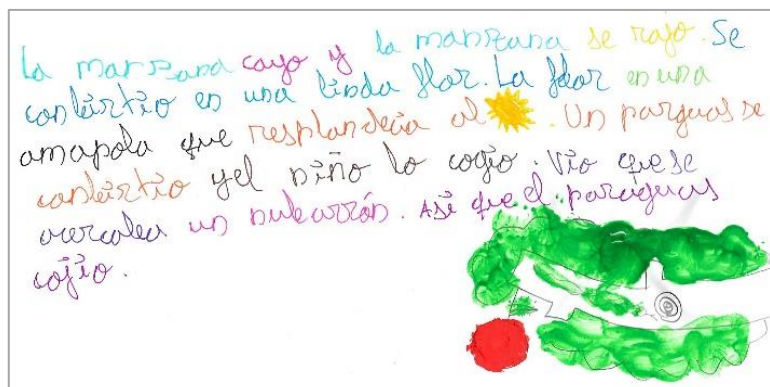 La manzana cayo y la manzana se rajo. Se
conbirtio en una linda flor. La flor en una
amapola que resplandecia al . Un parguas se
conbirtio y el niño lo cogio. Vio que se
acercaba un nubarrón. Asi que el paraguas
cojio.